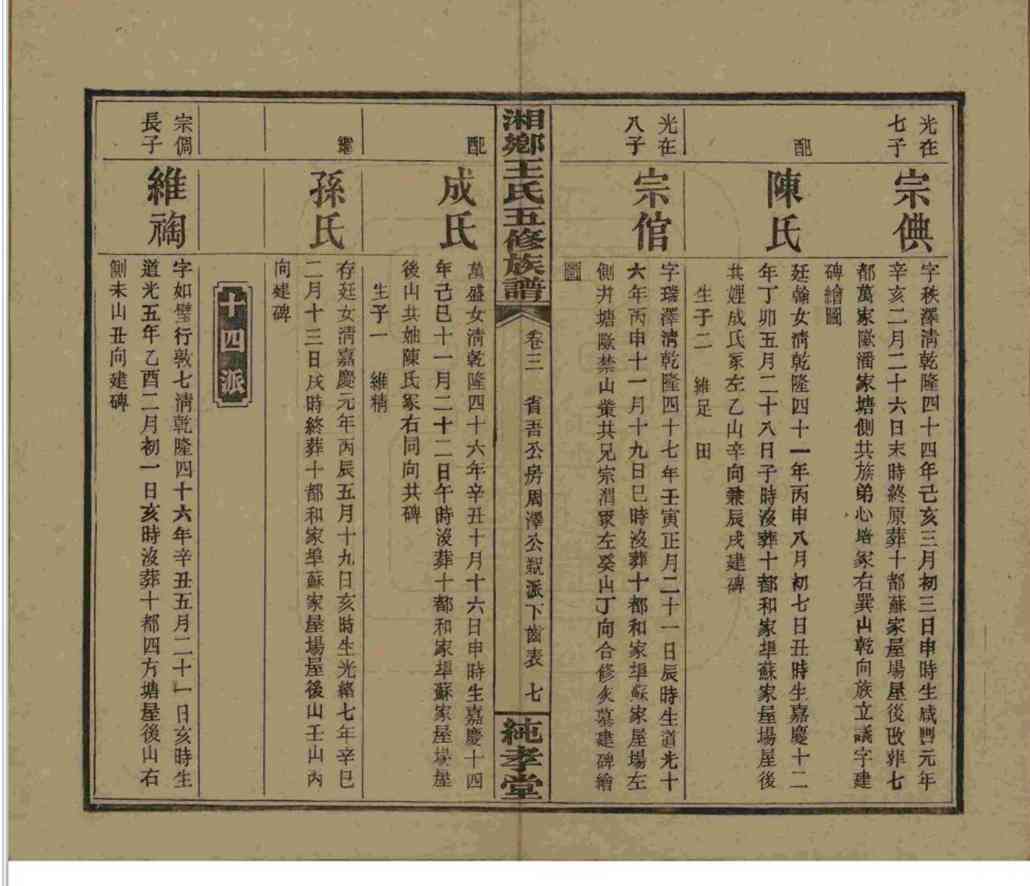 光在
七子
宗㒟
字秩澤清乾隆四十四年己亥三月初三日申時生咸豐元年
辛亥二月二十六日未時終原葬十都蘇家屋場屋後改葬七
都萬家歐潘家塘側共族弟心培冢右巽山乾向族立議字建
碑繪圖
配
陳氏
廷翰女清乾隆四十一年丙申八月初七日丑時生嘉慶十二
年丁卯五月二十八日子時沒葬十都和家埠蘇家屋場屋後
共娌成氏冢左乙山辛向兼辰戌建碑
生子二 維足 田
光在
八子
宗倌
字瑞澤清乾隆四十七年壬寅正月二十一日辰時生道光十
六年丙申十一月十九日巳時沒葬十都和家埠蘇家屋場左
側井塘歐禁山塋共兄宗渭冢左癸山丁向合修亥墓建碑繪
圖
湘鄉王氏五修族譜
卷三
省吾公房周澤公親派下齒表
七
純孝堂
配
成氏
萬盛女清乾隆四十六年辛丑十月十六日申時生嘉慶十四
年己巳十一月二十二日午時沒葬十都和家埠蘇家屋塲屋
後山共妯陳氏冢右同向共碑
生子一 維精
繼
孫氏
存廷女清嘉慶元年丙辰五月十九日亥時生光緒七年辛巳
二月十三日戌時終葬十都和家埠蘇家屋場屋後山壬山丙
向建碑
十四派
宗倜
長子
維裪
字如璧行敦七清乾隆四十六年辛丑五月二十一日亥時生
道光五年乙酉二月初一日亥時沒葬十都四方塘屋後山右
側未山丑向建碑